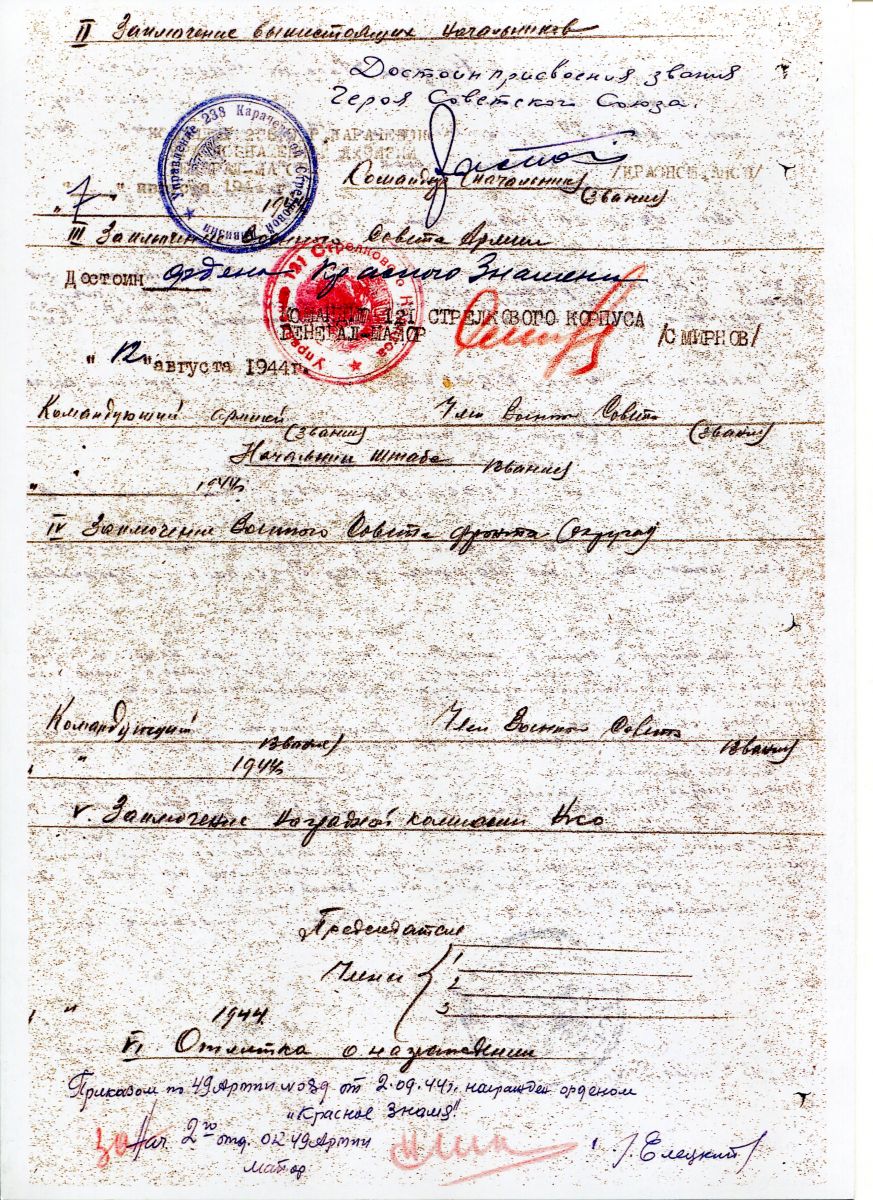 II Заключение вышестоящих начальников
Достоин присвоения звания
Героя Советского Союза.
Управление 238 Карачевской Стрелковой Дивизии
августа 1944 г.
Командир (начальник) /КРАСНОШТАНОВ/
(звания)
"7"
III Заключение Военного Совета Армии
Достоин ордена Красного Знамени
121 Стрелкового Корпуса
КОМАНДИР 121 СТРЕЛКОВОГО КОРПУСА
ГЕНЕРАЛ-МАЙОР /СМИРНОВ/
"12" августа 1944г.
Командующий армией Член Военного Совета
(звания) (звания)
Начальник штаба
(звания)
" " 1944
IV Заключение Военного Совета фронта (округа)
Командующий Член Военного Совета
(звания) (звания)
" 1944
V. Заключение Наградной комиссии НКО
Председатель
Члены 1
2
3
" 1944
VI Отметка о награждении
Приказом по 49 Армии № 039 от 2.09.44г. награжден орденом
"Красное Знамя".
За Нач. 2го отд. ОК 49 Армии
майор /Елецкий/